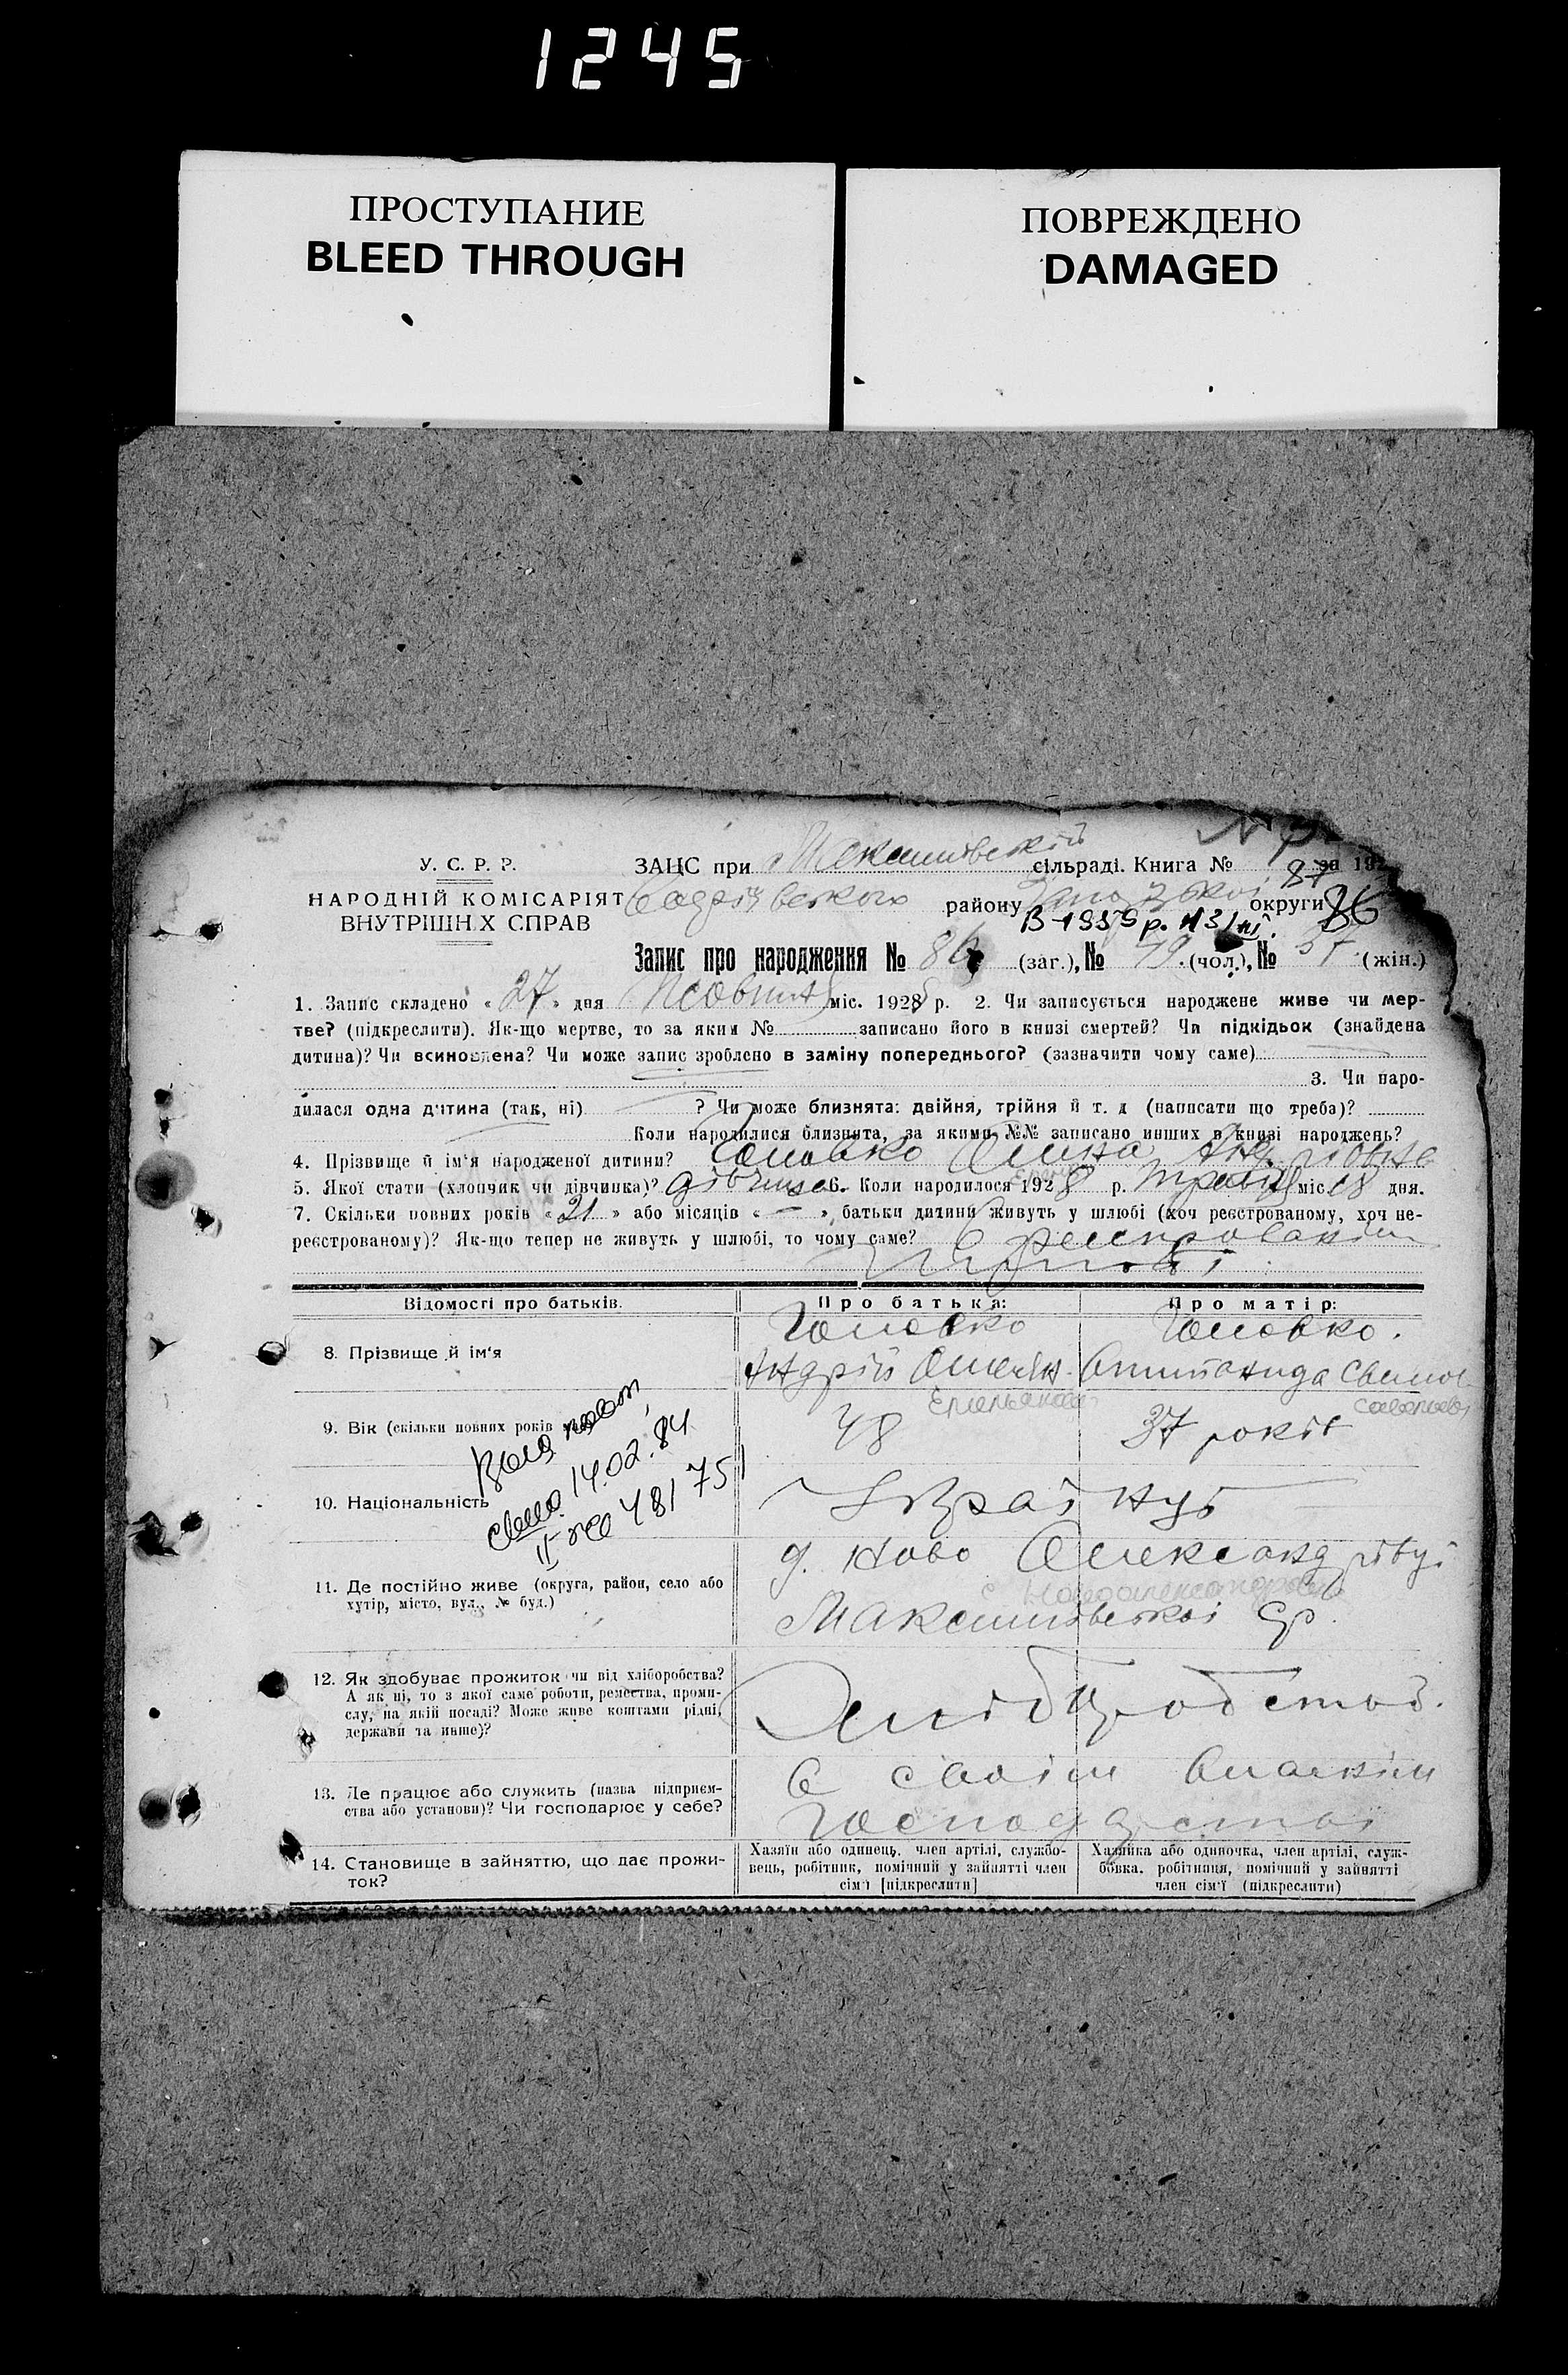 1245
ПРОСТУПАНИЕ
BLEED THROUGH
ПОВРЕЖДЕНО
DAMAGED
У. С. Р. Р.
НАРОДНІЙ КОМІСАРІЯТ
ВНУТРІШН Х СПРАВ
ЗАЦС при сільраді. Книга № за 192
району округи 86
В-1959 р.
Запис про народження № 86 (заг.), № 49 (чол.), № 37 (жін.)
1. Запис складено « 27 » дня Жовтня міс. 1928 р. 2. Чи записується народжене живе чи мер-
тве? (підкреслити). Як-що мертве, то за яким № записано його в книзі смертей? Чи підкідьок (знайдена
дитина)? Чи всиновлена? Чи може запис зроблено в заміну попереднього? (зазначити чому саме)
3. Чи наро-
дилася одна дитина (так, ні) ? Чи може близнята: двійня, трійня й т. д (написати що треба)?
Коли народилися близнята, за якими №№ записано инших в книзі народжень?
4. Прізвище й ім'я народженої дитини? Головко Олина Андріівна
5. Якої стати (хлопчик чи дівчинка)? дівчинка 6. Коли народилося 1928 р. Травня міс. 18 дня.
7. Скільки повних років « 21 » або місяців « — », батьки дитини живуть у шлюбі (хоч реєстрованому, хоч не-
реєстрованому)? Як-що тепер не живуть у шлюбі, то чому саме?
Відомості про батьків.
Про батька:
Про матір:
8. Прізвище й ім'я
Головко
Головко.
Андрій
9. Вік (скільки повних років має)
48
37 років
14.02.84
10. Національність
Українці
11. Де постійно живе (округа, район, село або
хутір, місто, вул., № буд.)
д. Ново Олександрівці
с Новоалександровка
Ср.
12. Як здобуває прожиток чи від хліборобства?
А як ні, то з якої саме роботи, ремества, проми-
слу, на якій посаді? Може живе коштами рідні,
держави та инше)?
13. Де працює або служить (назва підприєм-
ства або установи)? Чи господарює у себе?
В своїм власнім
14. Становище в зайняттю, що дає прожи-
ток?
Хазяїн або одинець, член артілі, службо-
вець, робітник, помічний у зайнятті член
сім'ї [підкреслити]
Хазяйка або одиночка, член артілі, служ-
бовка, робітниця, помічний у зайнятті
член сім'ї (підкреслити)